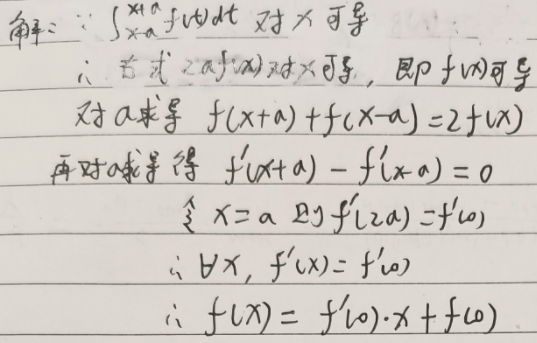 解: ∵ ∫_{x-a}^{x+a} f(t)dt 对 x 可导
∴ 右式 2af(x) 对 x 可导, 即 f(x) 可导
对 a 求导 f(x+a)+f(x-a)=2f(x)
再对a求导得 f'(x+a)-f'(x-a)=0
令 x=a 则 f'(2a)=f'(0)
∴ ∀x, f'(x)=f'(0)
∴ f(x)=f'(0)·x+f(0)